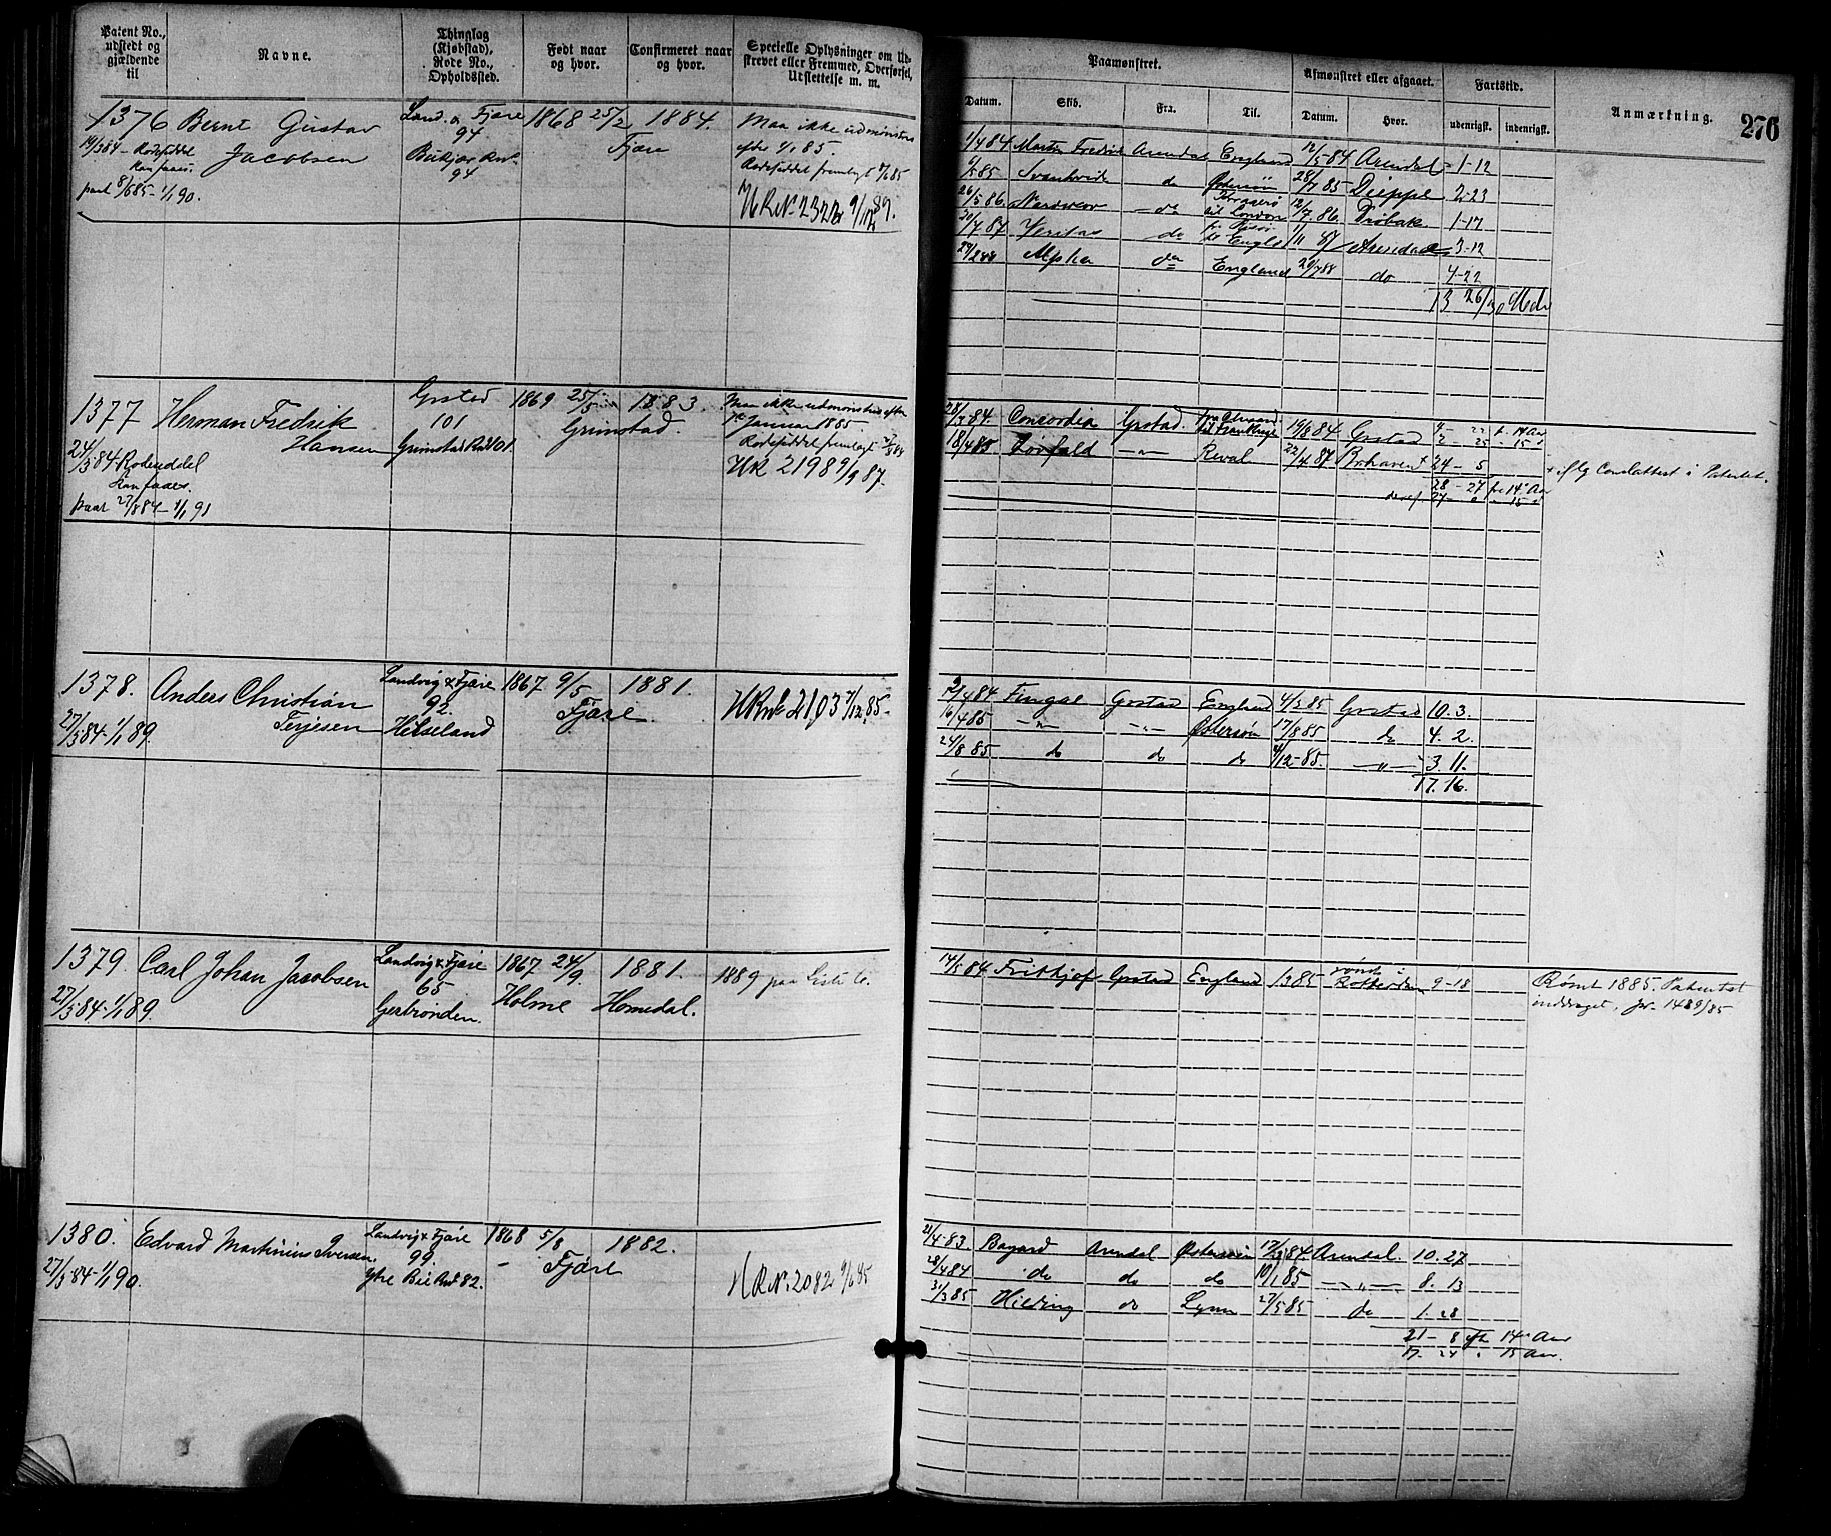 Patent No.,
udstedt og
gjældende
til
Navne.
Thinglag
(Kjøbstad),
Rode No.,
Opholdssted.
Født naar
og hvor.
Confirmeret naar
og hvor.
Specielle Oplysninger om Ud-
skrevet eller Fremmed, Overførsel,
Udslettelse m. m.
1376 Bernt Gustav Land. & Fjære 1868 25/2 1884. Maa ikke udmønstres
Jacobsen 94 Fjære efter 1/1 85.
19/3 84 - Rodeseddel
kan faaes.
94 Rodeseddel fremlagt 8/6 85
paat 8/6 85 - 1/1 90.
HR No 2322 9/12 89.
1377 Herman Fredrik Grstad 1869 25/5 1883. Maa ikke udmønstres efter
Hansen 101 Grimstad. 1ste Januar 1885
24/3 84 Rodeseddel Grimstad Rd 101 Rodeseddel fremlagt
kan faaes. HR 2198 9/9 87.
paat 27/8 84 - 1/1 91
1378. Anders Christian Landvig & Fjære 1867 9/5 1881. HR No 2103 7/12 85-
Terjesen 92. Fjære.
27/3 84 - 1/1 89. Hesseland
1379. Carl Johan Jacobsen Landvig & Fjære 1867 24/9 1881. 1889 paa Liste C.
65 Holme Homedal.
27/3 84 - 1/1 89. Gerbrønden.
1380. Edvard Martinius Iversen. Landvig & Fjære 1868 5/8 1882.
99. - Fjære
27/3 84 - 1/1 90. Ytre Bie Rd 82. HR No 2082 9/6 85
Paamønstret.
Afmønstret eller afgaaet.
Fartstid.
Anmærkning.
276
Datum. Skib. Fra. Til. Datum. Hvor. udenrigst. indenrigst.
1/4 84 Martin Fredrik Arendal England 12/5 84 Arendal 1-12
85 Svanhvide do Østersøn 28/7 85 Dieppe 2-23
26/5 86 do Kragerø
til London 12/7 86. Drøbak 1-17
20/7 87 Veritas do
til Engld 1/11 87 Arendal 3-12
27/2 88 Alpha do England 20/7 88 do 4-22
13 26/30 Mdr
28/3 84. Concordia Grstad. 19/8 84 Grstad
18/4 85 Thorfald -"- Reval 22/4 87 Brhaven + 24-5 + iflg Conslattest i Patentet.
28-27 fra 14 Aar
deraf 27
2/4 84 Fingal Grstad England 4/3 85 Grstad 10.3.
16/4 85 -"- -"- Østersøn 17/8 85 do 4.2.
24/8 85 do do do 4/12-85. -"- 3.11.
17.16.
14/5 84 Fritkjof Grstad England 1/3 85 rømt i
Rotterdam 9-18 Rømt 1885. Patentet
inddraget, Jr. 1489/85
21/4-83 Bayard Arendal Østersøen 17/3 84. Arendal. 10.27
28/4 84 do do do 10/1 85 -"- 8.13
31/3 85 Hilding do Lynn 27/5 85 do 1.28
21-8 eft 14 Aar
17-24 " 15 Aar.